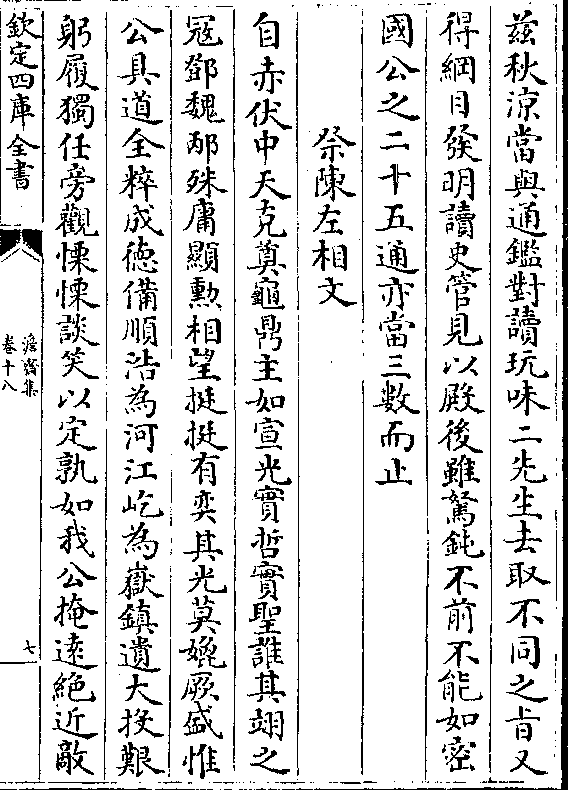 茲秋涼當與通鑑對讀玩味二先生去取不同之㫖又
得綱目發明讀史管見以殿後雖駑鈍不前不能如宻
國公之二十五通亦當三數而止
祭陳左相文
自赤伏中天克奠龜鼎主如宣光實哲實聖誰其翊之
冦鄧魏邴殊庸顯勲相望挺挺有奕其光莫媲厥盛惟
公具道全粹成徳備順浩為河江屹為嶽鎮遺大投艱
躬履獨任旁觀慄慄談笑以定孰如我公掩逺絶近敵
欽定四庫全書
澹齋集
卷十八
七